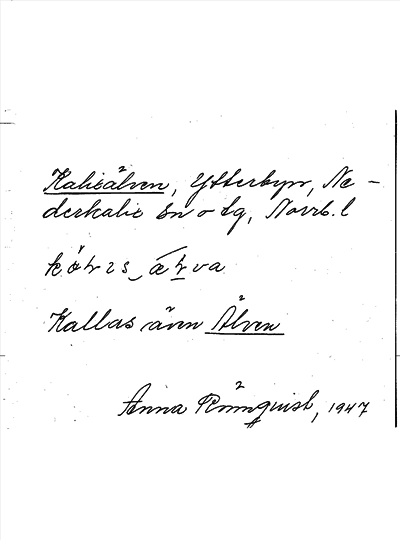 Kalixälven, Ytterbyn, Ne-
derkalix sn o tg, Norrb. l
Kallas även Älven
Anna Rönnquist, 1947